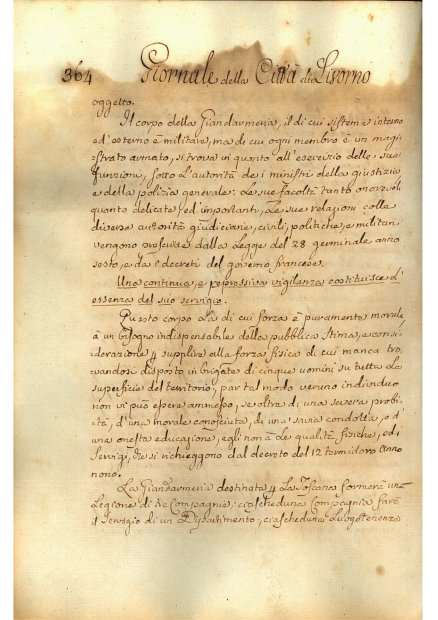 364 Giornale della Città di Livorno
oggetto.
Il corpo della Giandarmeria, il di cui sistema interno
ed'esterno è militare, ma di cui ogni membro è un magi=
strato armato, si trova in quanto all'esercizio delle sue
funzioni, sotto l'autorità de i ministri della giustizia
e della polizia generale: Le sue facoltà tanto onorevoli
quanto delicate, ed'importanti, Le sue relazioni colle
diverse autorità giudiciarie, civili, politiche, e militari
vengono prescritte dalla Legge del 28 germinale anno
sesto, e da i decreti del governo francese.
Una continua, e repressiva vigilanza costituisce l'
essenza del suo servigio.
Questo corpo La di cui forza è puramente morale
à un bisogno indispensabile della pubblica stima, e consi=
derazione p supplire alla forza fisica di cui manca tro
vandosi disposto in brigate di cinque uomini su tutta La
superficie del territorio; par tal modo veruno individuo
non vi può essere ammesso, se oltre di una severa probi=
tà, d'una morale conosciuta, di una savia condotta, e d'
una onesta educazione, egli non à Le qualità fisiche, ed i
servigi, che si richieggono dal decreto del 12 termidoro anno
nono.
La Giandarmeria destinata p La Toscana formerà una
Legione di tre Compagnie; ciascheduna Compagnia farà
il servigio di un Dipartimento; ciascheduna Luogotenenza